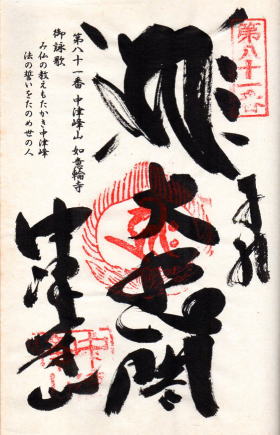 第八十一番
奉拝
大悲閣
中津峰山
第八十一番 中津峰山 如意輪寺
御詠歌
み仏の教えもたかき中津峰
法の誓いをたのめ世の人